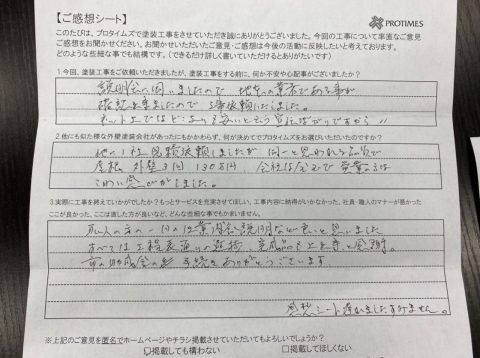 【ご感想シート】
PROTIMES
このたびは、プロタイムズで塗装工事をさせていただき誠にありがとうございました。今回の工事について率直なご意見
ご感想をお聞かせください。お聞かせいただいたご意見・ご感想は今後の活動に反映したいと考えております。
どのような些細な事でも結構です。(できるだけ詳しく書いていただけるとありがたいです)
1.今回、塗装工事をご依頼いただきましたが、塗装工事をする前に、何か不安や心配事がございましたか?
説明会に伺いましたので 地元の業者である事が
確認出来ましたので 工事依頼いたしました。
ネット上ではどこよりも安いと言う宣伝ばかりですから
2.他にも似た様な外壁塗装会社があったにもかかわらず、何が決めてでプロタイムズをお選びいただいたのですか?
他に1社見積依頼しましたが 同一と思われる品質で
屋根 外壁
こわい感じがしました。
3.実際に工事を終えていかがでしたか?もっとサービスを充実させてほしい、工事内容に納得がいかなかった、社員・職人のマナーが悪かった
ここが良かった、ここは直した方が良いなど、どんな些細な事でもかまいません。
職人の方の一日の作業内容を説明など良いと思いました
すべては工程表通りの進捗 完成品も上出来と感謝。
市の助成金の 手続きありがとうございます
感想シート遅れましたすみません。
※上記のご意見を匿名でホームページやチラシ掲載させていただいてもよろしいでしょうか?
☑掲載しても構わない □掲載してほしくない